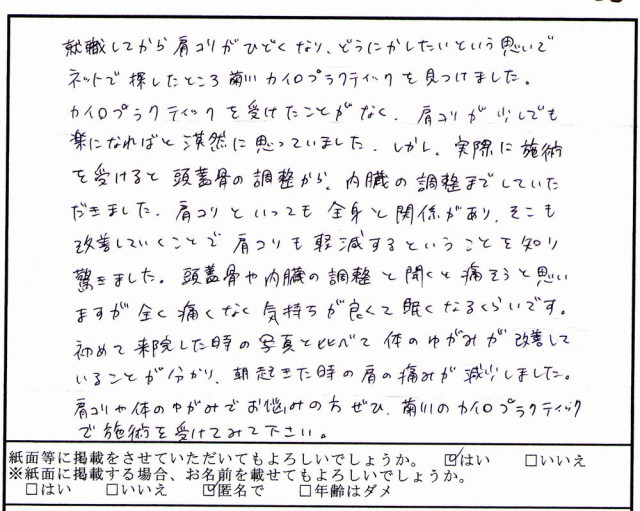 就職してから肩コリがひどくなり、どうにかしたいという思いで
ネットで探したところ菊川カイロプラクティックを見つけました。
カイロプラクティックを受けたことがなく、肩コリが少しでも
楽になればと漠然に思っていました。しかし、実際に施術
を受けると頭蓋骨の調整から、内臓の調整までしていた
だきました。肩コリといっても全身と関係があり、そこも
改善していくことで肩コリも軽減するということを知り
驚きました。頭蓋骨や内臓の調整と聞くと痛そうと思い
ますが全く痛くなく気持ちが良くて眠くなるくらいです。
初めて来院した時の写真と比べて体のゆがみが改善して
いることが分かり、朝起きた時の肩の痛みが減少しました。
肩コリや体のゆがみでお悩みの方ぜひ、菊川のカイロプラクティック
で施術を受けてみて下さい。
紙面等に掲載をさせていただいてもよろしいでしょうか。 ☑はい □いいえ
※紙面に掲載する場合、お名前を載せてもよろしいでしょうか。
□はい □いいえ ☑匿名で □年齢はダメ